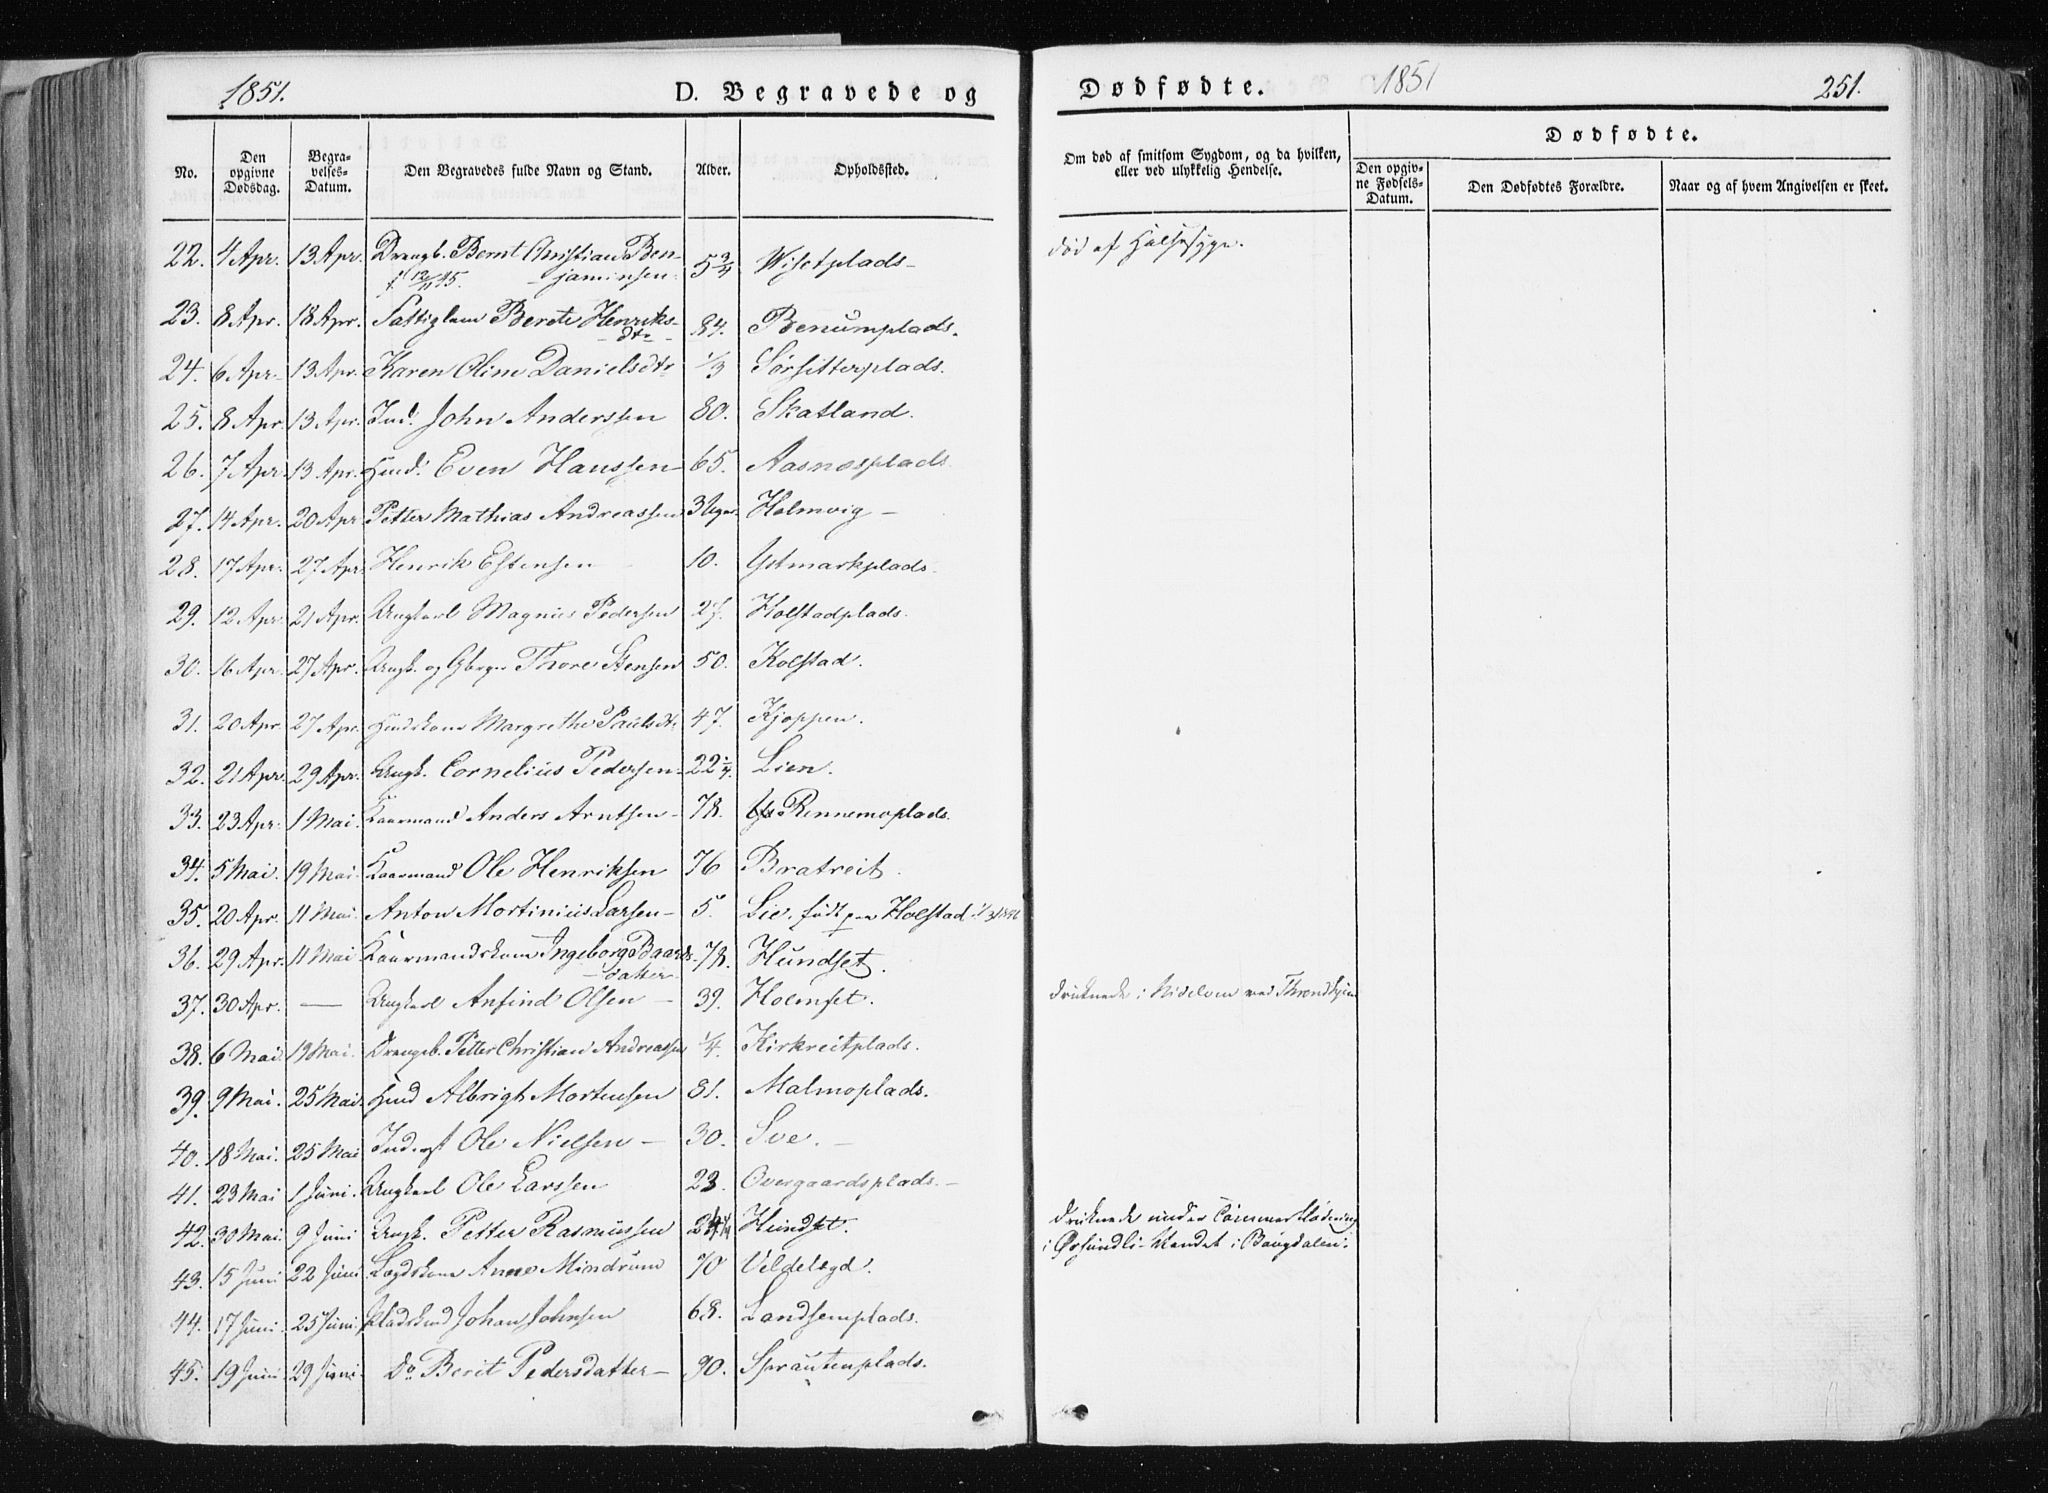 1851.
D. Begravede og
Dødfødte.
1851
251.
No.
Den opgivne Dødsdag.
Begravelses-Datum.
Den Begravedes fulde Navn og Stand.
Alder.
Opholdssted.
Om død af smitsom Sygdom, og da hvilken, eller ved ulykkelig Hendelse.
Dødfødte.
Den opgivne Fødsels-Datum.
Den Dødfødtes Forældre.
Naar og af hvem Angivelsen er skeet.
22. 4 Apr. 13 Apr. Drengb. Bernt Christian Ben- 5 3/4 Wisetplads- død af Halssyge.
f. 12/11 45. -jaminsen.
23. 8 Apr. 18 Apr. Berete Henriks- 84. Benumplads.
-dtr-
24. 6 Apr. 13 Apr. Karen Oline Danielsdtr 1/3 Sørsitterplads.
25. 8 Apr. 13 Apr. Ind. John Anderssen 80. Skatland.
26. 7 Apr. 13 Apr. Huusm. Even Hanssen 65. Aasnesplads
27. 14 Apr. 20 Apr. Petter Mathias Andreassen 3 Uger. Holmvig-
28. 17 Apr. 27 Apr. Henrik Estensen 10. Ystmarkplads.
29. 12 Apr. 21 Apr. Ungkarl Magnus Pedersen Holstadplads.
30. 16 Apr. 27 Apr. Ungk. og Thore Stensen 50. Kolstad.
31. 20 Apr. 27 Apr. Margrethe Paulsdtr 47. Kjoppen.
32. 21 Apr. 29 Apr. Ungk. Cornelius Pedersen- 22 1/4. Lien.
33. 23 Apr. 1 Mai. Kaarmand Anders Arntsen- 78. Rennemoplads.
34. 5 Mai. 19 Mai. Kaarmand Ole Henriksen 76 Bratreit.
35. 20 Apr. 11 Mai. Anton Mortinius Larsen- 5. Lie. født paa Holstad
36. 29 Apr. 11 Mai Kaarmandskone Ingeborg Baards- 78. Hundset.
-datter-
37. 30 Apr. — Ungkarl Anfind Olsen - 39. Holmset. druknede i Nidelven ved Throndhjem
38. 6 Mai. 19 Mai. Drengeb. Petter Christian Andreassen 1/4. Kirkreitplads.
39. 9 Mai. 25 Mai. Albrigt Mortensen 81. Malmoplads.
40. 18 Mai. 25 Mai Inderst Ole Nielsen- 30. Sve.-
41. 23 Mai 1 Juni. Ungkarl Ole Larssen 23. Overgaardsplads.-
42. 30 Mai. 9 Juni Ungk. Petter Rasmussen 24 1/4 Hundset. druknede under Tømmerflødning
i Vandet i Bangdalen.
43. 15 Juni 22 Juni. Lægdskone Anne Mindrum 70 Veldelægd.
44. 17 Juni. 25 Juni. Johan Johnsen 68. Landsemplads.
45. 19 Juni 29 Juni. Do Berit Pedersdatter- 90. Sprautenplads.